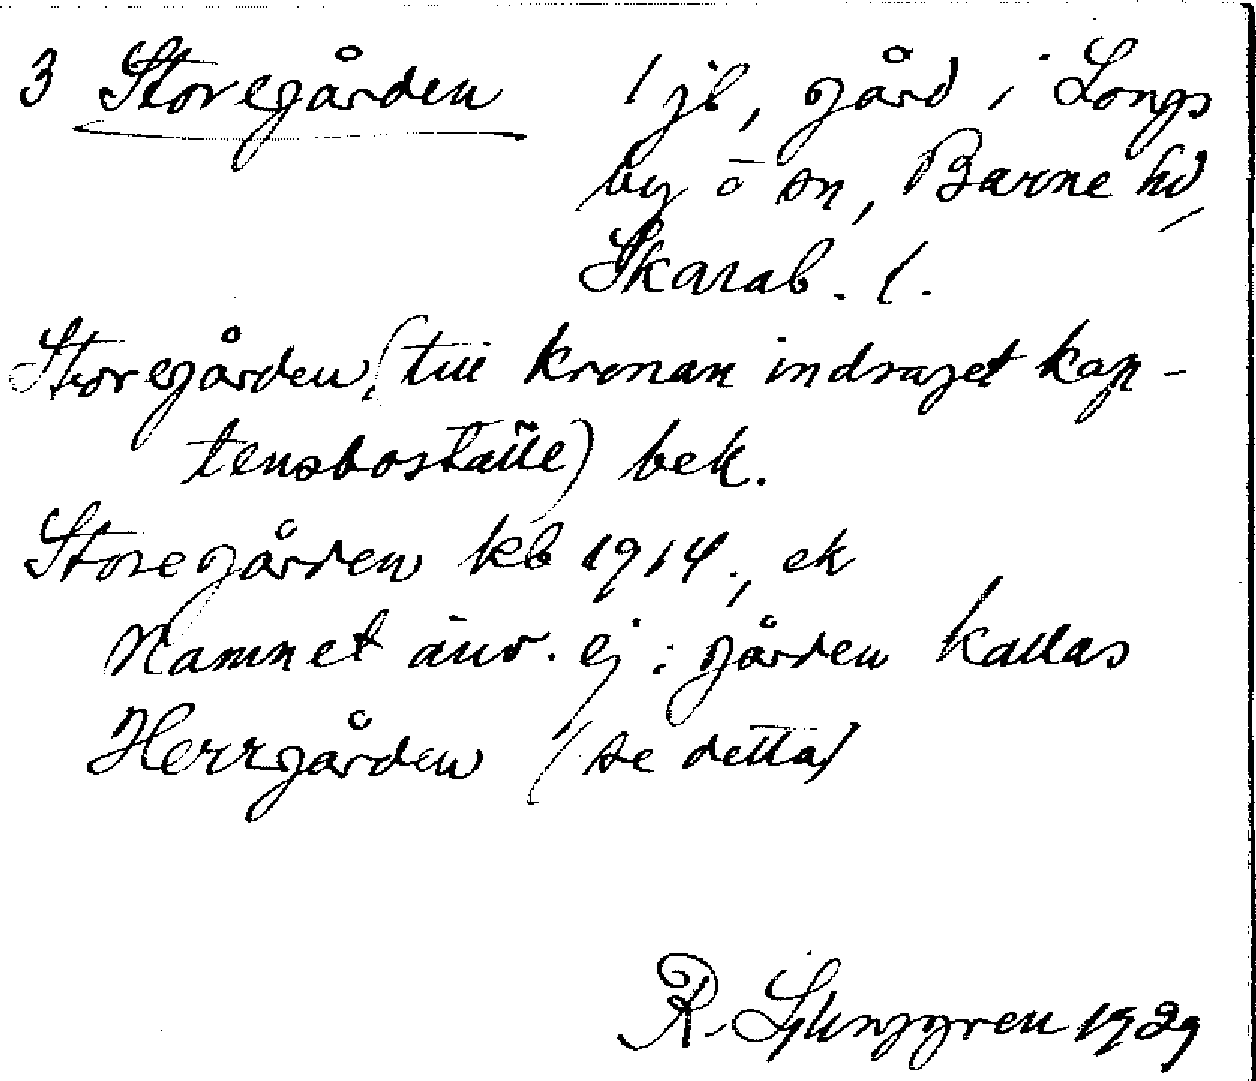 3 Storegården 1 jb, gård i Longs
by o sn, Barne hd,
Skarab. l.
Storegården (till kronan indraget kap-
tensboställe) bek.
Storegården kb 1914, ek
Namnet anv. ej; gården kallas
Herrgården (se detta)
R. Ljunggren 1929